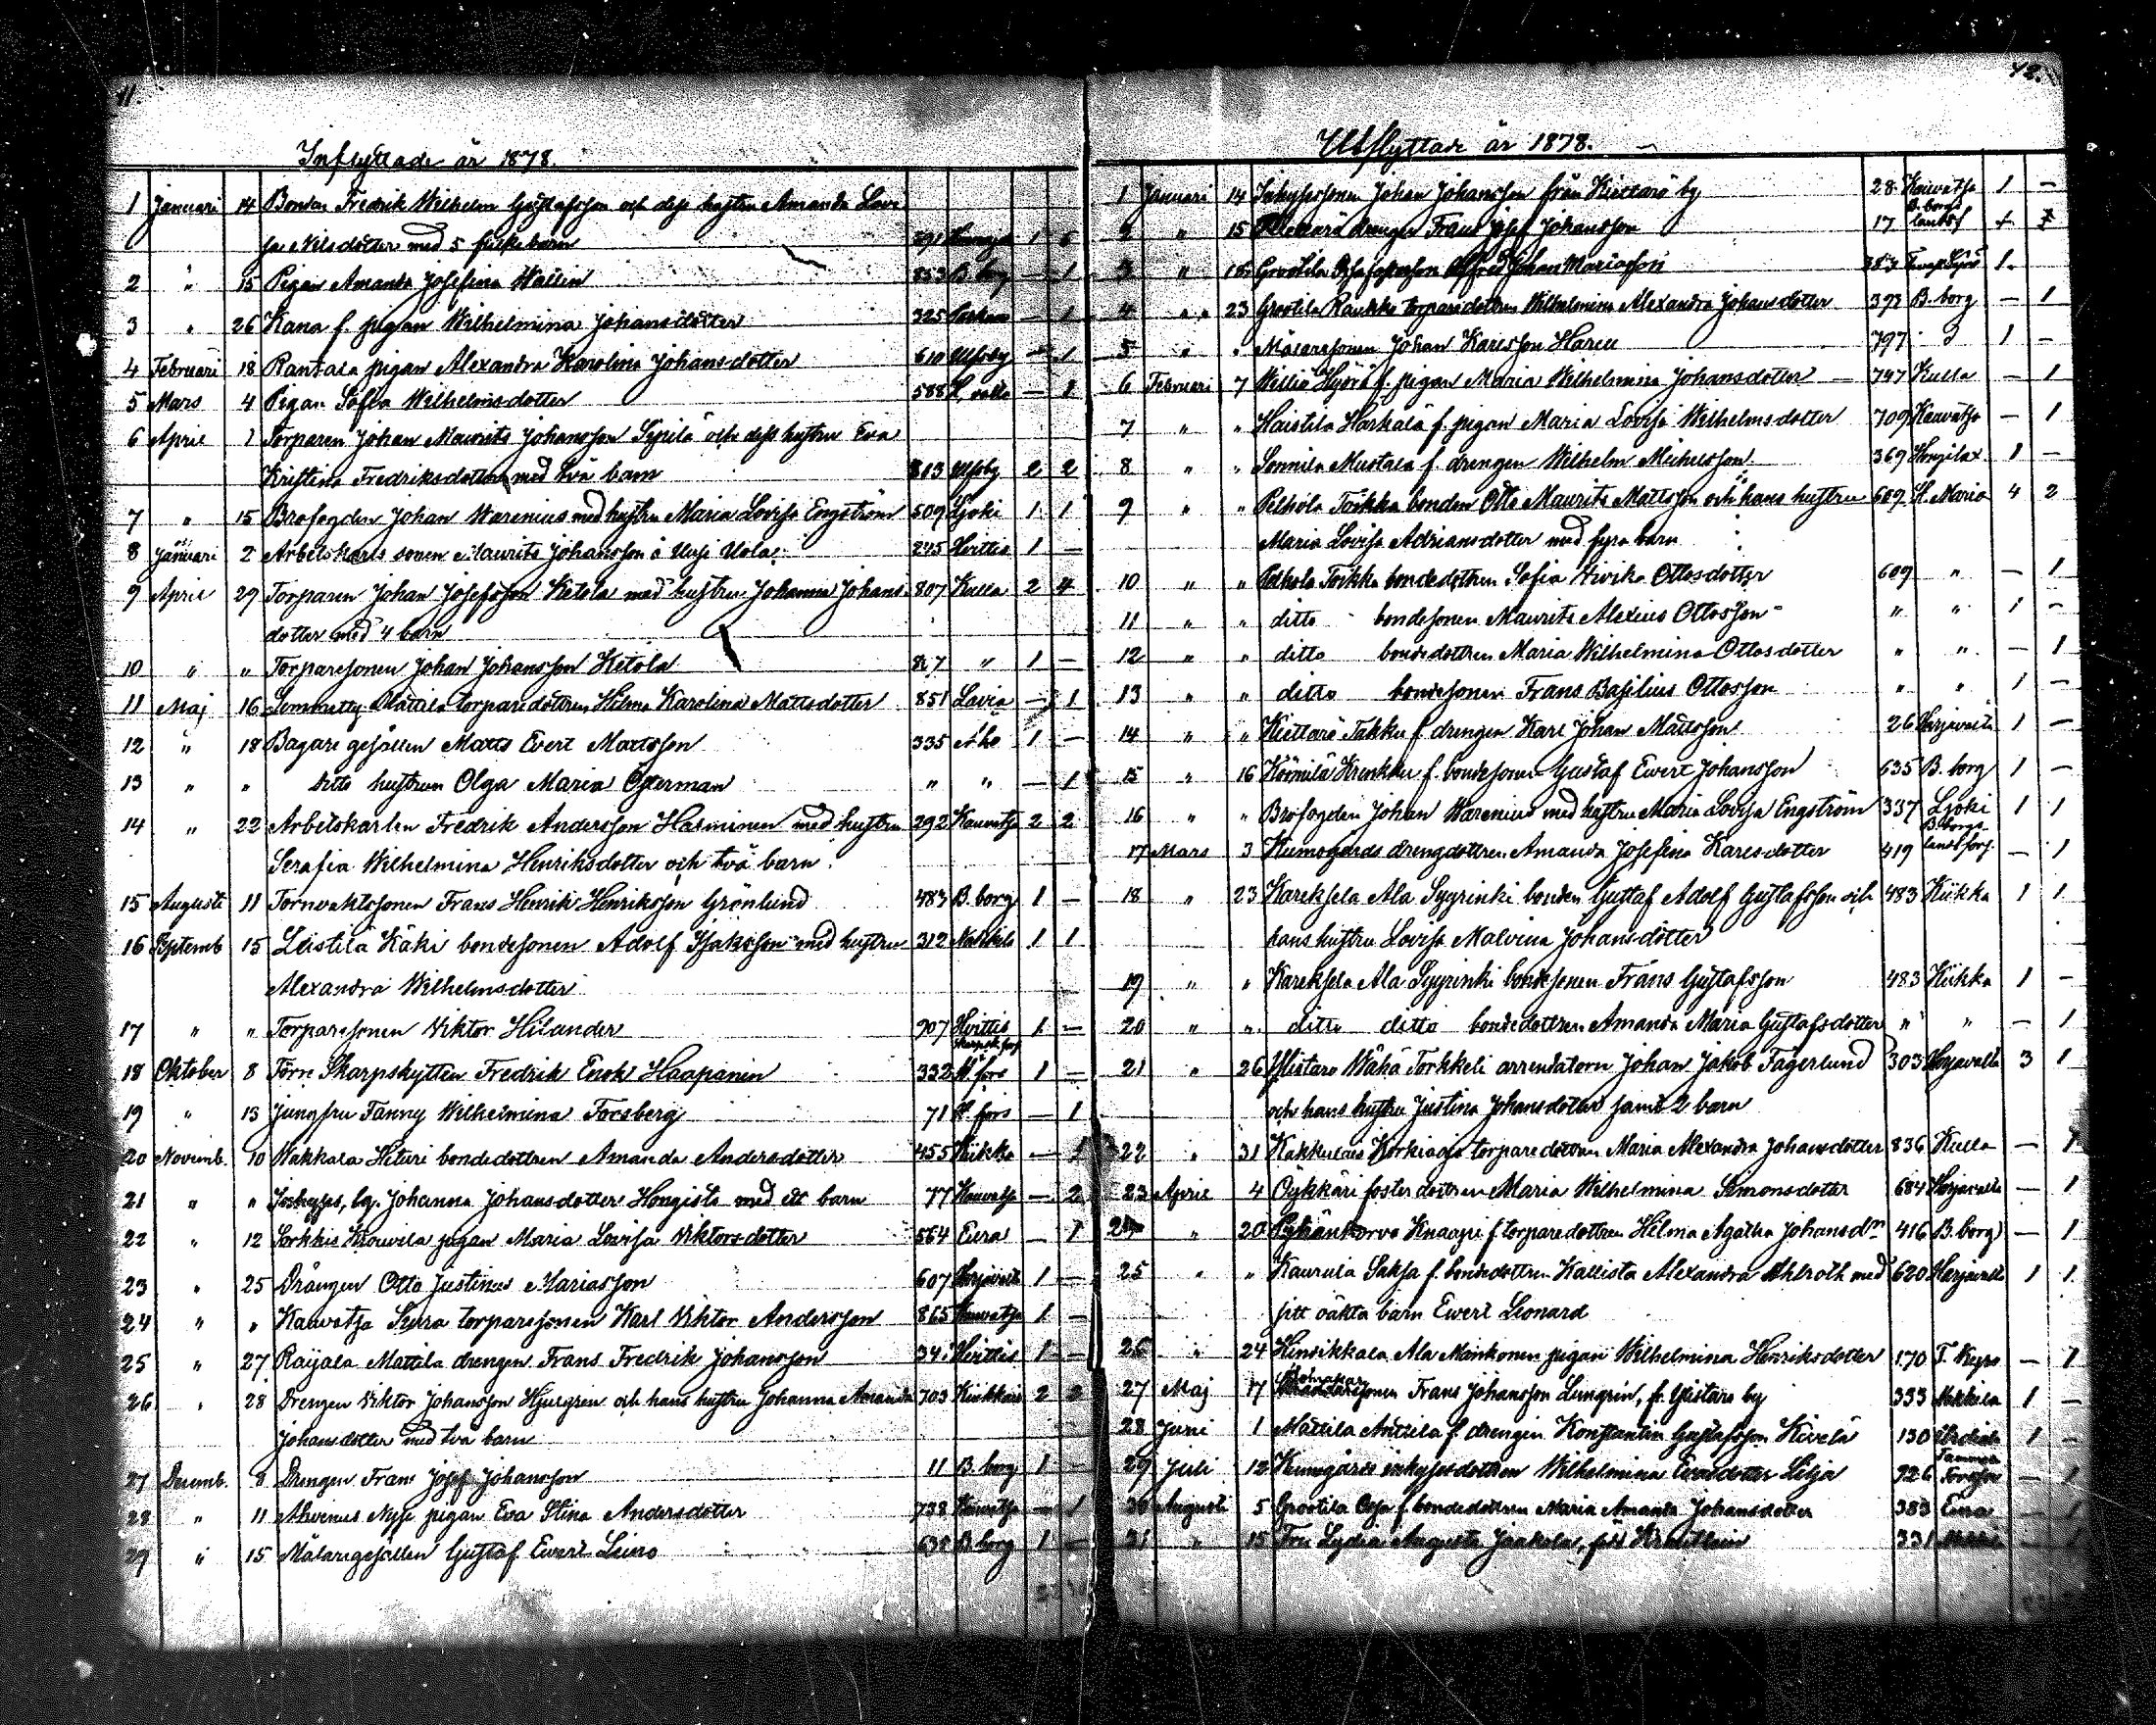 41.
Inflyttade år 1878.
1 Januari 14 Bonden Fredrik Wilhelm Gustafsson och dess hustru Amanda Lovi
sa Nilsdotter med 5 barn 291 1 6
2 " 15 Pigan Amanda Josefina Wallin 853 B. borg — 1
3 " 26 Kana f. pigan Wilhelmina Johansdotter 325 — 1
4 Februari 18 Rantala pigan Alexandra Karolina Johansdotter 610 Ulfsby — 1
5 Mars 4 Pigan Sofia Wilhelmsdotter 588 — 1
6 April 1 Torparen Johan Maurits Johansson Sepilä och dess hustru Eva
Kristina Fredriksdotter med två barn 813 Ulfsby 2 2
7 " 15 Brofogden Johan Warenius med hustru Maria Lovisa Engström 509 Ljoki 1 1
8 Januari 2 Arbetskarls sonen Maurits Johansson å Uusi Uola 245 Hvittis 1 —
9 April 29 Torparen Johan Josefsson Ketola med hustru Johanna Johans- 807 Kulla 2 4
dotter med 4 barn
10 " " Torparesonen Johan Johansson Ketola 807 " 1 —
11 Maj 16 Mattila torparedottren Hilma Karolina Mattsdotter 851 Lavia — 1
12 " 18 Bagare gesällen Matts Evert Mattsson 335 Åbo 1 —
13 " " ditto hustrun Olga Maria Österman " " — 1
14 " 22 Arbetskarlen Fredrik Andersson Hasminen med hustru 292 Kauvatsa 2 2
Serafia Wilhelmina Henriksdotter och två barn
15 Augusti 11 Tornvaktssonen Frans Henrik Henriksson Grönlund 483 B. borg 1 —
16 Septemb 15 Leistilä Käki bondesonen Adolf Isaksson med hustru 312 Nakkila 1 1
Alexandra Wilhelmsdotter
17 " " Torparesonen Viktor Hilander 907 Hvittis 1 —
18 Oktober 8 Förre Skarpskytten Fredrik Enok Haapanen 332 H. fors 1 —
19 " 13 Jungfru Fanny Wilhelmina Forsberg 71 H. fors — 1
20 Novemb. 10 Wakkala Hituri bondedottren Amanda Andersdotter 455 Kiikka — 1
21 " " Inhyses, lg. Johanna Johansdotter Hongisto med ett barn 77 Kauvatsa — 2
22 " 12 Sorkkis Krouvila pigan Maria Lovisa Viktorsdotter 564 Eura — 1
23 " 25 Drängen Otto Justinus Mariasson 607 Harjavalta 1 —
24 " " Kauvatsa Surra torparesonen Karl Viktor Andersson 865 Kauvatsa 1 —
25 " 27 Raijala Mattila drengen Frans Fredrik Johansson 34 Hvittis 1 —
26 " 28 Drengen Viktor Johansson Hjulgren och hans hustru Johanna Amanda 703 Kiukkais 2 2
Johansdotter med två barn
27 Decemb. 8 Drengen Frans Josef Johansson 11 B. borg 1 —
28 " 11 pigan Eva Stina Andersdotter 738 Kauvatsa — 1
29 " 15 Målaregesällen Gustaf Evert Leino 638 B. borg 1 —
42.
Utflyttade år 1878.
1 Januari 14 Inhysessonen Johan Johansson från Kiettarö by 28 Kauvatsa 1 —
2 " 15 drengen Frans Josef Johansson 17 B. borgs landsf
3 " 15 Grootila Johan Mariasson 383 1.
4 " " 23 Grootila Raukko torparedottren Wilhelmina Alexandra Johansdotter 392 B. borg — 1
5 " " Målaresonen Johan Karlsson Haren 797 1 —
6 Februari 7 Hyörä f. pigan Maria Wilhelmina Johansdotter 747 Kulla — 1
7 " " Haistila Harkala f. pigan Maria Lovisa Wilhelmsdotter 709 Kauvatsa — 1
8 " " Sonnila Mustala f. drengen Wilhelm Michelsson 369 Hongilax 1 —
9 " " Pelhola Toikka bonden Otto Maurits Mattsson och hans hustru 609 St Maria 4 2
Maria Lovisa Adriansdotter med fyra barn
10 " " Pelhola Toikka bondedottren Sofia Ottosdotter 609 " — 1
11 " " ditto bondesonen Maurits Alexius Ottosson " " 1 —
12 " " ditto bondedottren Maria Wilhelmina Ottosdotter " " — 1
13 " " ditto bondesonen Frans Basilius Ottosson " " 1 —
14 " " Kiettarö Takku f. drengen Karl Johan Mattsson 26 Harjavalta 1 —
15 " 16 Krenkku f. bondesonen Gustaf Evert Johansson 635 B. borg 1 —
16 " " Brofogden Johan Warenius med hustru Maria Lovisa Engström 337 Ljoki 1 1
17 Mars 3 Kumogårds drengdottren Amanda Josefina Karlsdotter 419 B. borgs landsförs. — 1
18 " 23 Kareksela Ala Sygrinki bonden Gustaf Adolf Gustafsson och 483 Kiikka 1 1
hans hustru Lovisa Malvina Johansdotter
19 " " Kareksela Ala Sygrinki bondesonen Frans Gustafsson 483 Kiikka 1 —
20 " " ditto ditto bondedottren Amanda Maria Gustafsdotter " " — 1
21 " 26 Ylistaro Wähä Torkkeli arrendatorn Johan Jakob Fagerlund 303 Harjavalta 3 1
och hans hustru Justina Johansdotter samt 2 barn
22 " 31 Kakkulais Korkiaoja torparedottren Maria Alexandra Johansdotter 836 Kulla — 1
23 April 4 Öykkäri fosterdottren Maria Wilhelmina Simonsdotter 684 Harjavalta — 1
24 " 20 Pyhänkorva Knaapi f torparedottren Hilma Agatha Johansdr 416 B. borg — 1
25 " " Kaurula Saksa f. bondedottren Kallista Alexandra Ahlroth med 620 Harjavalta 1 1
sitt oäkta barn Evert Leonard
26 " 24 Hinsikkala Ala pigan Wilhelmina Henriksdotter 170 T. Kyro — 1
27 Maj 7 Frans Johansson Lungren, fr. Ylistaro by 333 Nakkila 1 —
28 Juni 1 Mattila Anttila f. drengen Konstantin Gustafsson Kivelä 130 1 —
29 Juli 12 Kumogårds inhysesdottren Wilhelmina Evasdotter Lilja 926 Tammerfors — 1
30 Augusti 5 Grootila f. bondedottren Maria Amanda Johansdotter 383 Eura — 1
31 " 15 Fru Lydia Augusta Jaakola, född 331 — 1